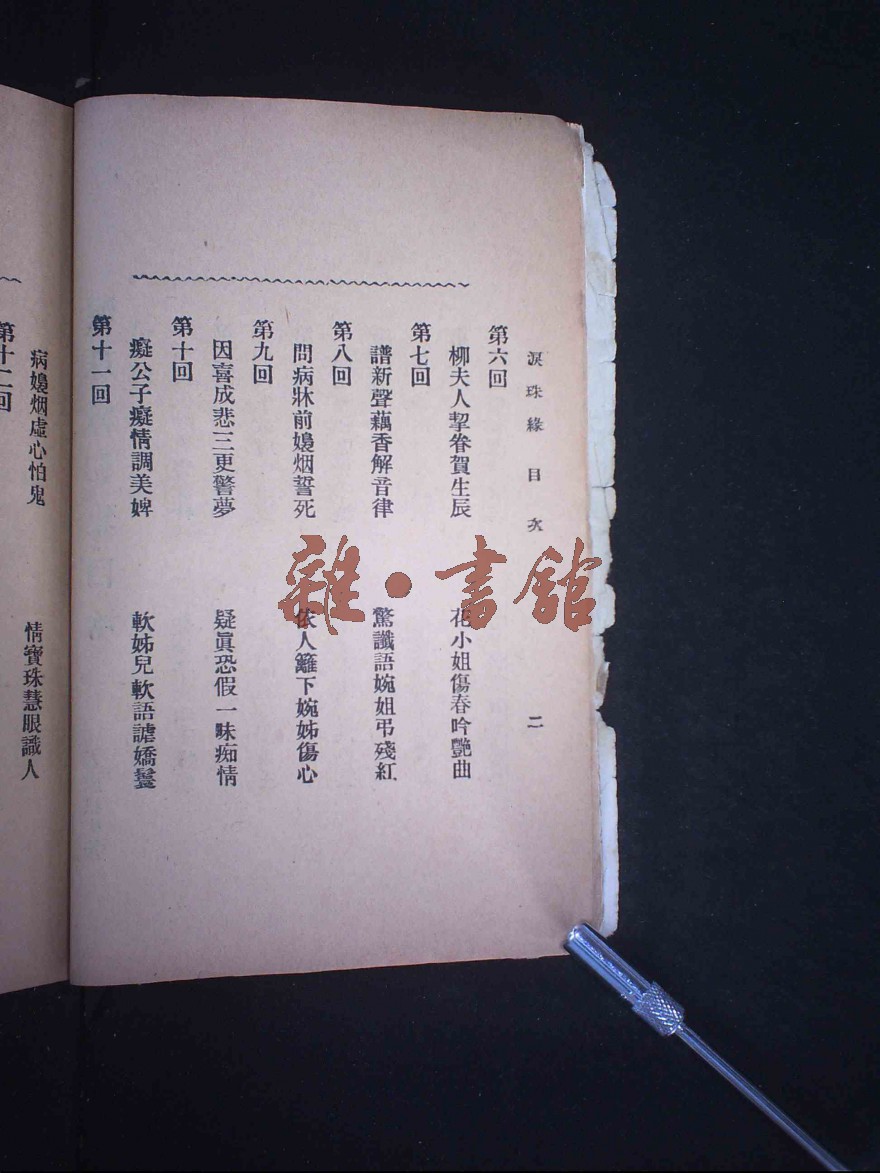 淚珠緣 目次 二
第六回
柳夫人挈眷賀生辰 花小姐傷春吟艷曲
第七回
譜新聲藕香解音律 驚讖語婉姐弔殘紅
第八回
問病牀前嫚烟誓死 依人籬下婉姊傷心
第九回
因喜成悲三更警夢 疑眞恐假一味痴情
第十回
癡公子癡情調美婢 軟姊兒軟語謔嬌鬟
第十一回
病嫚烟虛心怕鬼 情寶珠慧眼識人
第十二回
雜·書舘